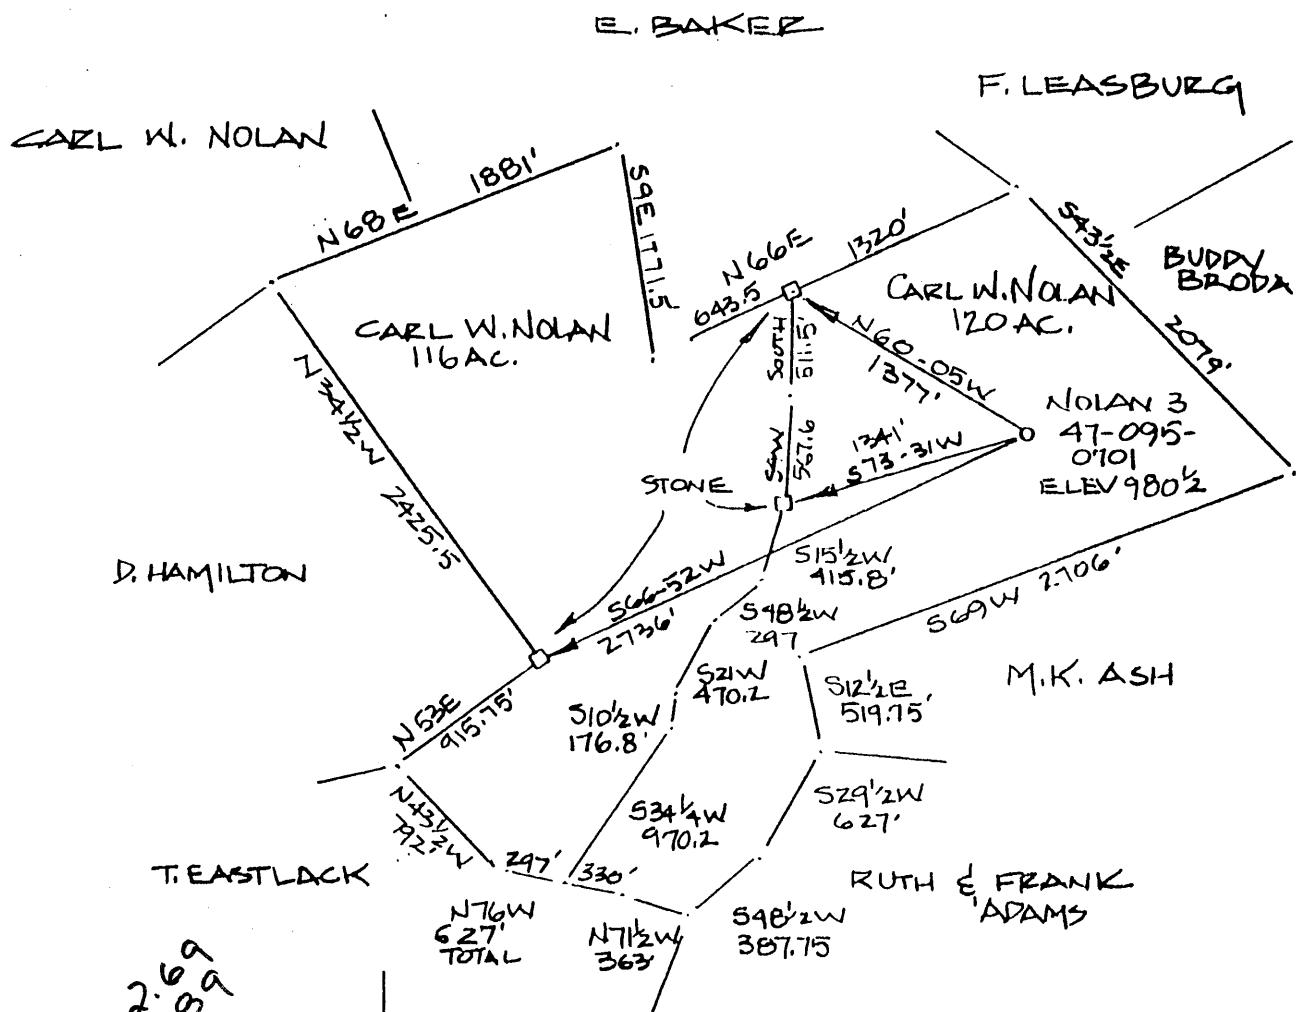 E. BAKER
F. LEASBURG
CARL W. NOLAN
N68E 1881'
S9E 1771.5'
N66E
643.5
1320'
S43½E
2079'
BUDDY
BRODA
CARL W. NOLAN
116 AC.
CARL W. NOLAN
120 AC.
SOUTH
511.5'
N60-05W
1377'
NOLAN 3
47-095-
0701
ELEV 980½
N34½W 2425.5
567.6
1341'
S73-31W
STONE
D. HAMILTON
S66-52W
2736'
S15½W
415.8'
S48½W
297
S69W 2706'
M.K. ASH
S21W
470.2
S12½E
519.75'
S10½W
176.8'
N53E
915.75'
N43½W
792'
S34¼W
970.2
S29½W
627'
T. EASTLACK
297'
330'
RUTH & FRANK
ADAMS
N76W
627'
TOTAL
N71½W
363'
S48½W
387.75
2.69
89